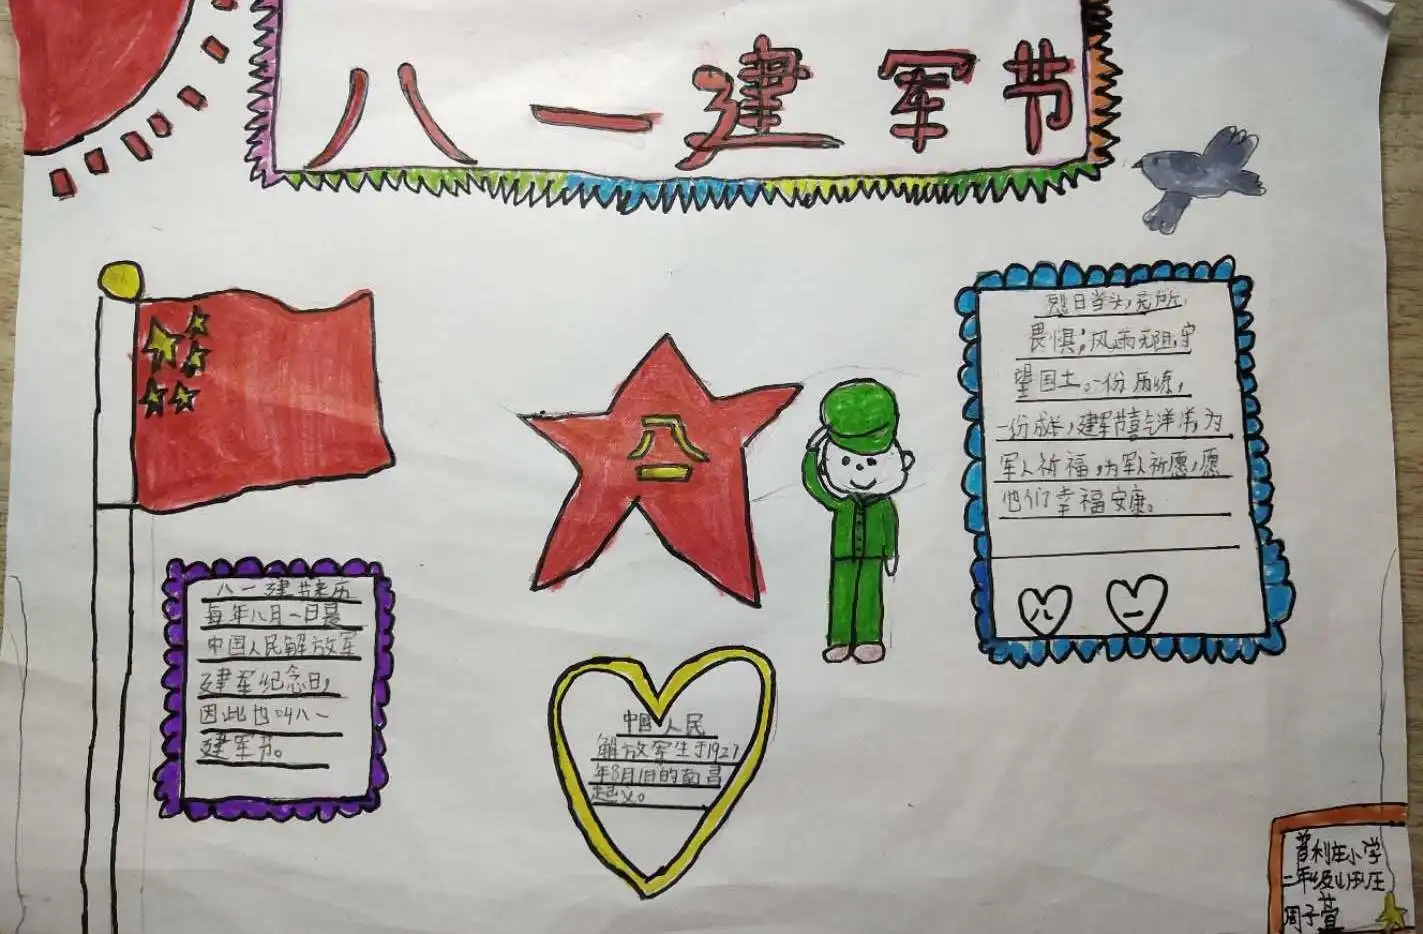 八一建军节
烈日当头，无所
畏惧；风雨无阻，守
望国土。一份历练，
一份成长，建军节喜气洋洋，为
军人祈福，为军人祈愿，愿
他们幸福安康。
八 一
八一
八一建节来历
每年八月一日是
中国人民解放军
建军纪念日，
因此也叫八一
建军节。
中国人民
解放军生于1927
年8月1日的南昌
起义。
普利庄小学
二年级
周子萱